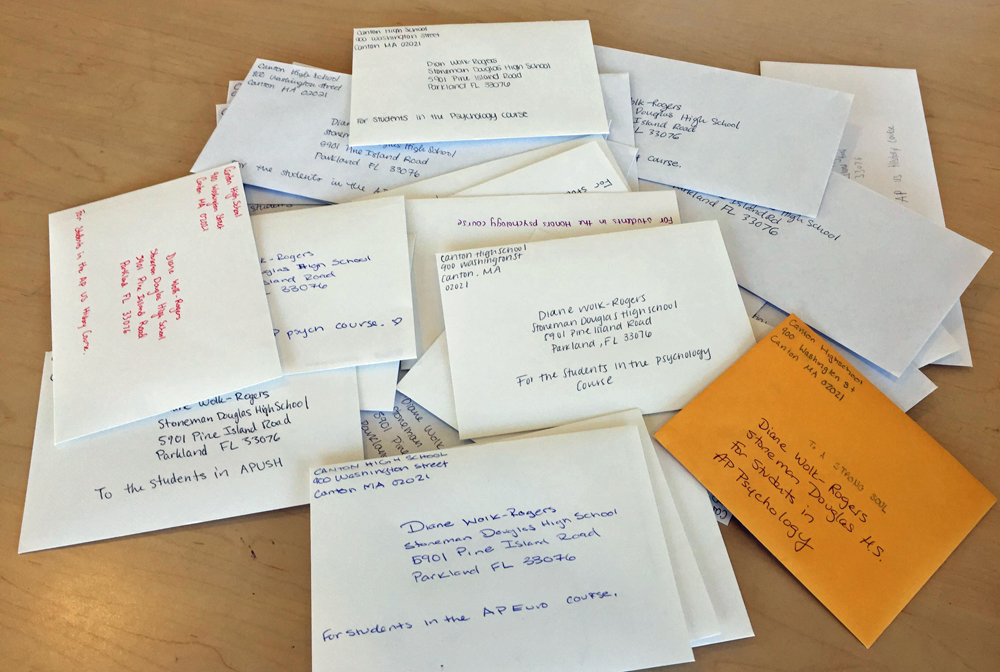 Canton High School
900 Washington Street
Canton MA 02021
Dian Wolk-Rogers
Stoneman Douglas High School
5901 Pine Island Road
Parkland FL 33076
For students in the Psychology course
Canton High School
900 Washington Street
Canton MA 02021
Dian
Stone
5901 Pine Island Road
Parkland FL 33076
For the students in the A
-Rogers
Douglas High School
Island Road
FL 33076
course.
33076
AP US History Course
Canton High School
900 Washington Street
Canton MA 02021
Diane Wolk-Rogers
Stoneman Douglas High School
5901 Pine Island Road
Parkland FL 33076
For Students in the AP US History Course.
For
For students in the Honors psychology course
Island Rd
High School
Parkland FL 33076
33076
k-Rogers
glas High School
Island Road
33076
psych course. ♡
Canton High School
900 Washington St
Canton, MA
02021
Diane Wolk-Rogers
Stoneman Douglas High school
5901 Pine Island Road
Parkland, FL 33076
For the Students in the psychology
course
Canton Highschool
900 Washington St
Canton MA 02021
To a strong soul
Diane Wolk-Rogers
Stoneman Douglas H.S.
For Students in
AP Psychology
Wolk-Rogers
Stoneman Douglas High School
5901 Pine Island Road
Parkland FL 33076
To the students in APUSH
Diane Wolk
Stoneman
5901 Pine
Parkland
CANTON HIGH SCHOOL
900 Washington Street
Canton MA 02021
Diane Wolk-Rogers
Stoneman Douglas High School
5901 Pine Island Road
Parkland FL 33076
For students in the AP Euro course.